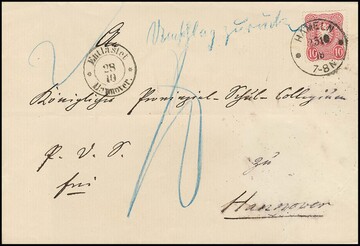 An
Umschlag zurück
HAMELN
7-8N
10 10
28
10
Hannover
Königliches Provinzial-Schul-Collegium
P. V. S.
frei
zu
Hannover